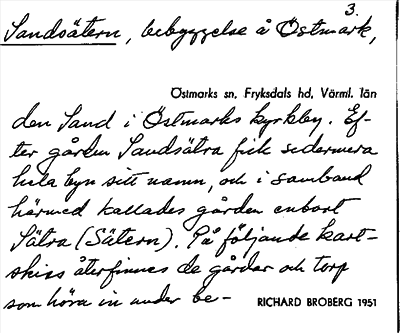 3.
Sandsätern, bebyggelse å Östmark,
Östmarks sn, Fryksdals hd, Värml. län
den Sand i Östmarks kyrkby. Ef-
ter gården Sandsätra fick sedermera
hela byn sitt namn, och i samband
härmed kallades gården enbart
Sätra (Sätern). På följande kart-
skiss återfinnes de gårdar och torp
som höra in under be-
RICHARD BROBERG 1951